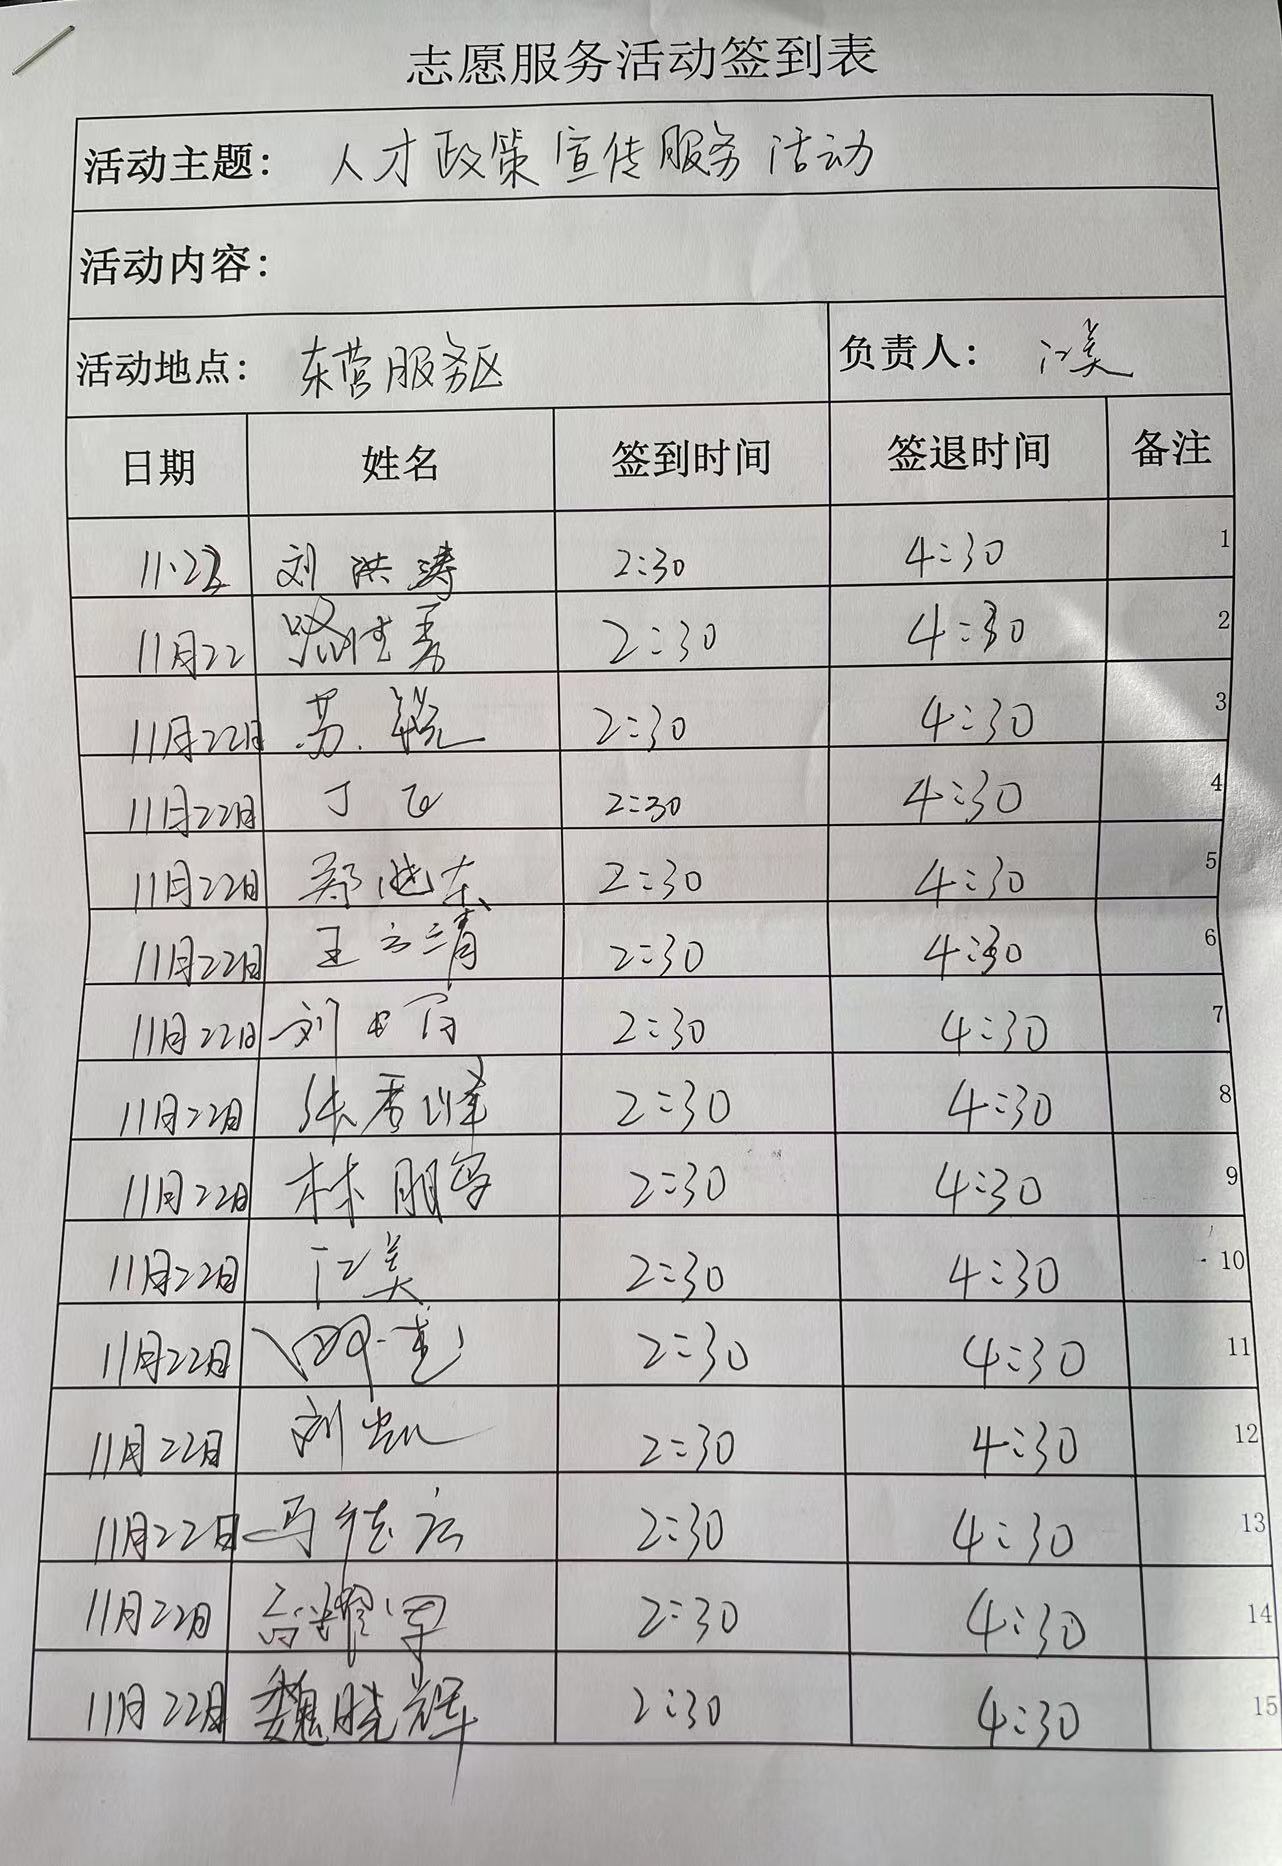 志愿服务活动签到表
活动主题: 人才政策宣传服务活动
活动内容:
活动地点: 东营服务区 负责人: 江美
日期 姓名 签到时间 签退时间 备注
11.22 刘洪涛 2:30 4:30 1
11月22 路胜勇 2:30 4:30 2
11月22日 苏锐 2:30 4:30 3
11月22日 丁飞 2:30 4:30 4
11月22日 郑继东 2:30 4:30 5
11月22日 王云清 2:30 4:30 6
11月22日 刘 2:30 4:30 7
11月22日 张秀峰 2:30 4:30 8
11月22日 林朋宇 2:30 4:30 9
11月22日 江美 2:30 4:30 10
11月22日 2:30 4:30 11
11月22日 刘凯 2:30 4:30 12
11月22日 马德宏 2:30 4:30 13
11月22日 高耀军 2:30 4:30 14
11月22日 魏晓辉 2:30 4:30 15